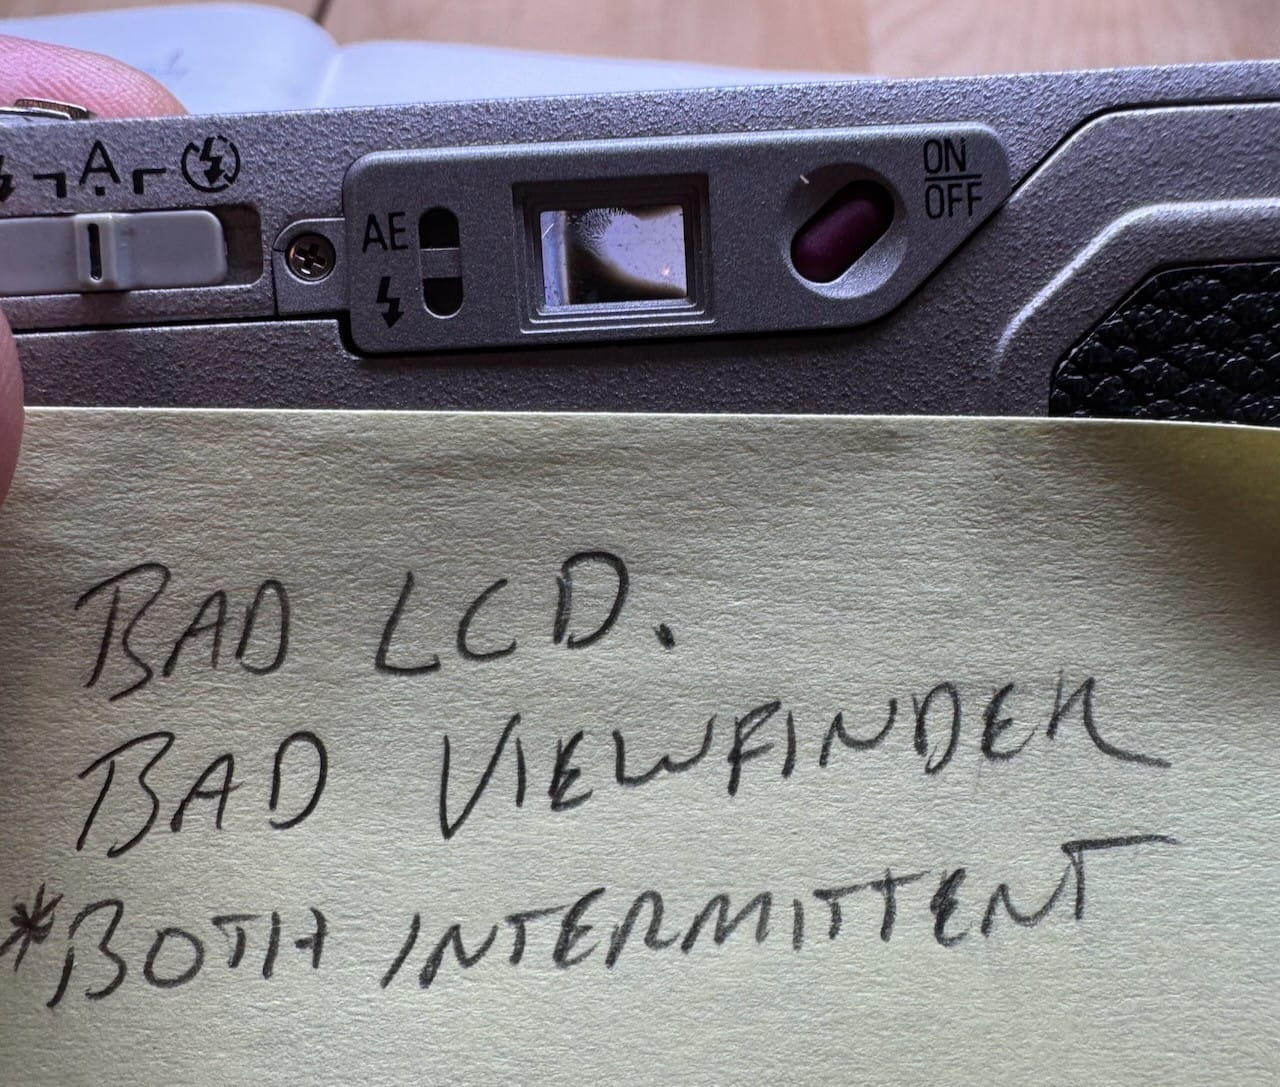 A
AE
ON
OFF
BAD LCD.
BAD VIEWFINDER
*BOTH INTERMITTENT